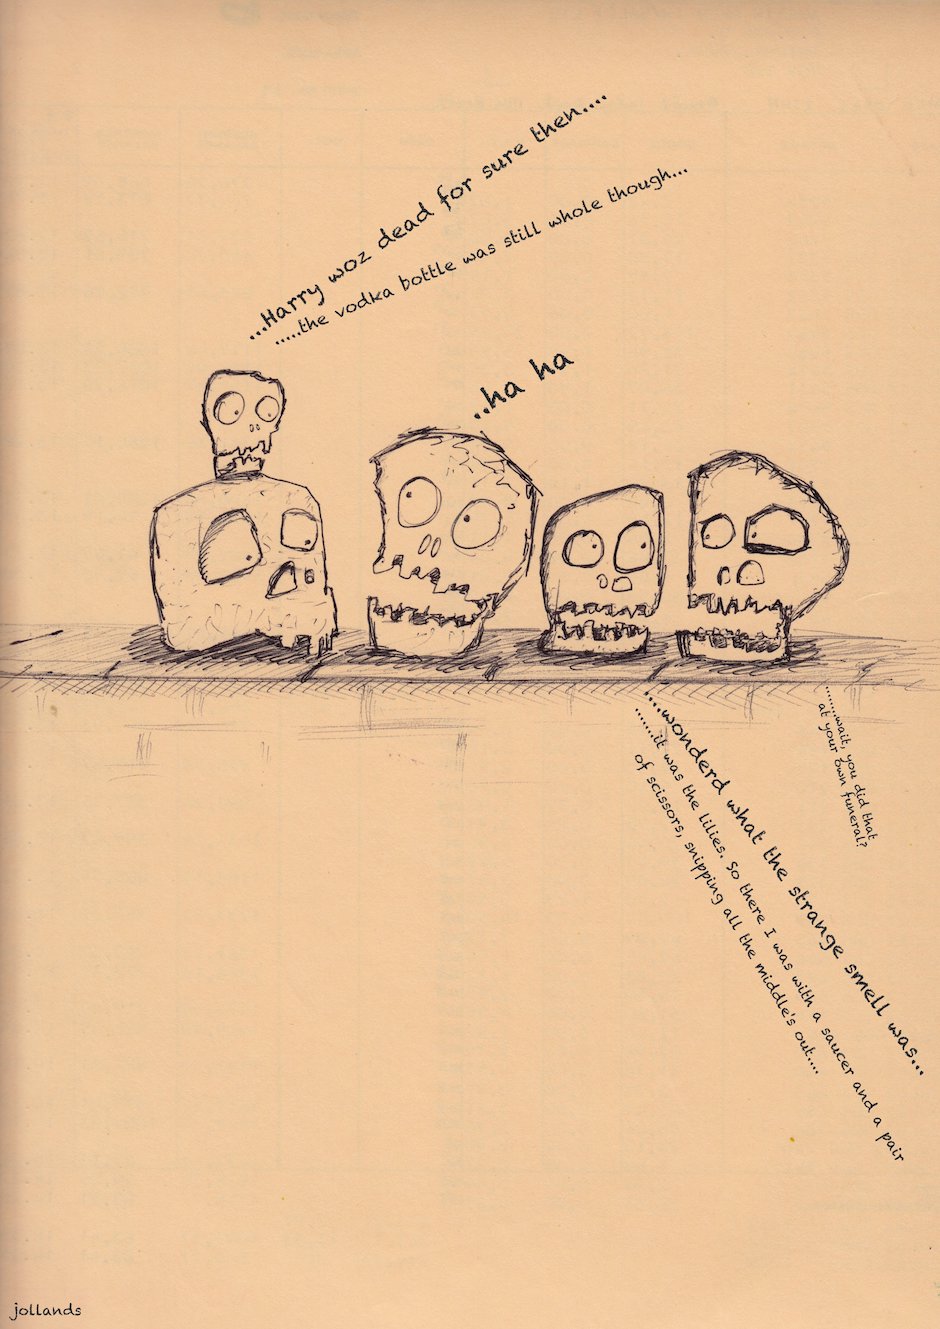 ...Harry woz dead for sure then....
.....the vodka bottle was still whole though...
..ha ha
....wonderd what the strange smell was...
......it was the lilies. So there I was with a saucer and a pair
of scissors, snipping all the middle's out....
.......wait, you did that
at your own funeral?
jollands